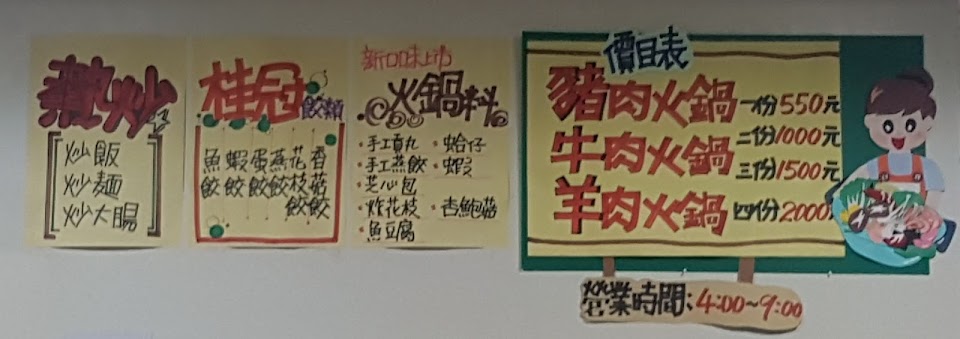 熱炒
炒飯
炒麵
炒大腸
桂冠餃類
魚餃
蝦餃
蛋餃
燕餃
花枝餃
香菇餃
新口味上市
火鍋料
·手工貢丸
·手工燕餃
·芝心包
·炸花枝
·魚豆腐
·蛤仔
·蝦
·杏鮑菇
價目表
豬肉火鍋
牛肉火鍋
羊肉火鍋
一份550元
二份1000元
三份1500元
四份2000元
營業時間:4:00~9:00